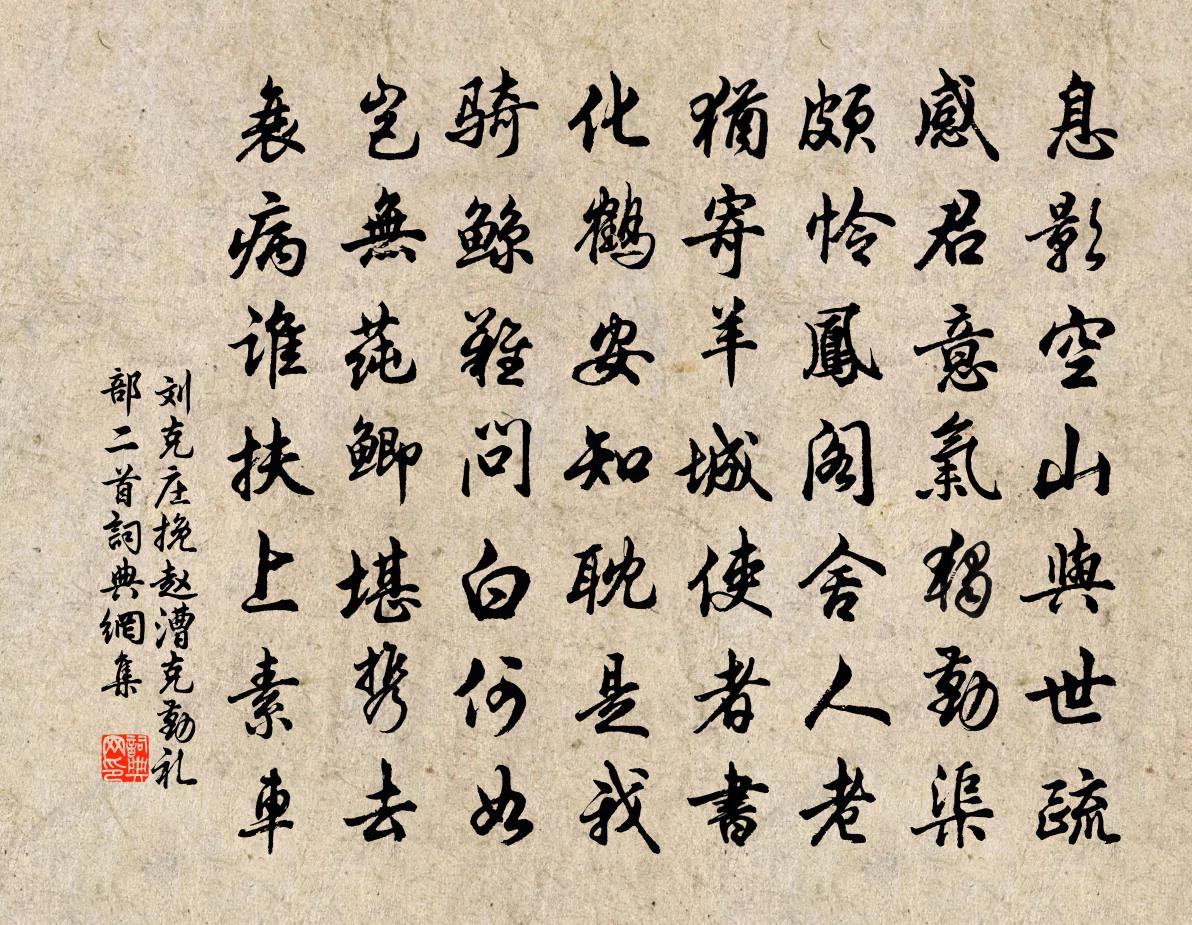 息影空山與世疏
感君意氣獨勤渠
頗怜鳳阁舍人老
猶寄羊城使者書
化鶴安知耽是我
骑鲸難問白何如
岂無莼鲫堪携去
衰病谁扶上素車
刘克庄挽赵漕克勤礼
部二首詞典網集
詞典
网印